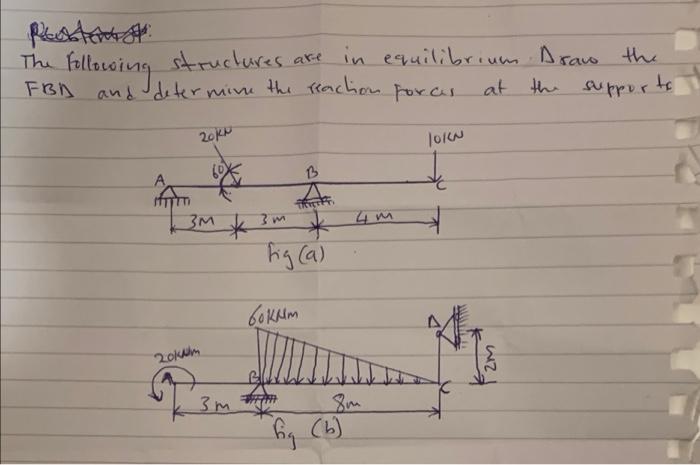 The following structures are in equilibrium. Draw the
FBD and determine the reaction forces at the supports
20KN
10KN
60°
A
B
C
3M
3m
4m
fig (a)
60KNm
D
20kNm
A
B
C
2m
3m
8m
fig (b)